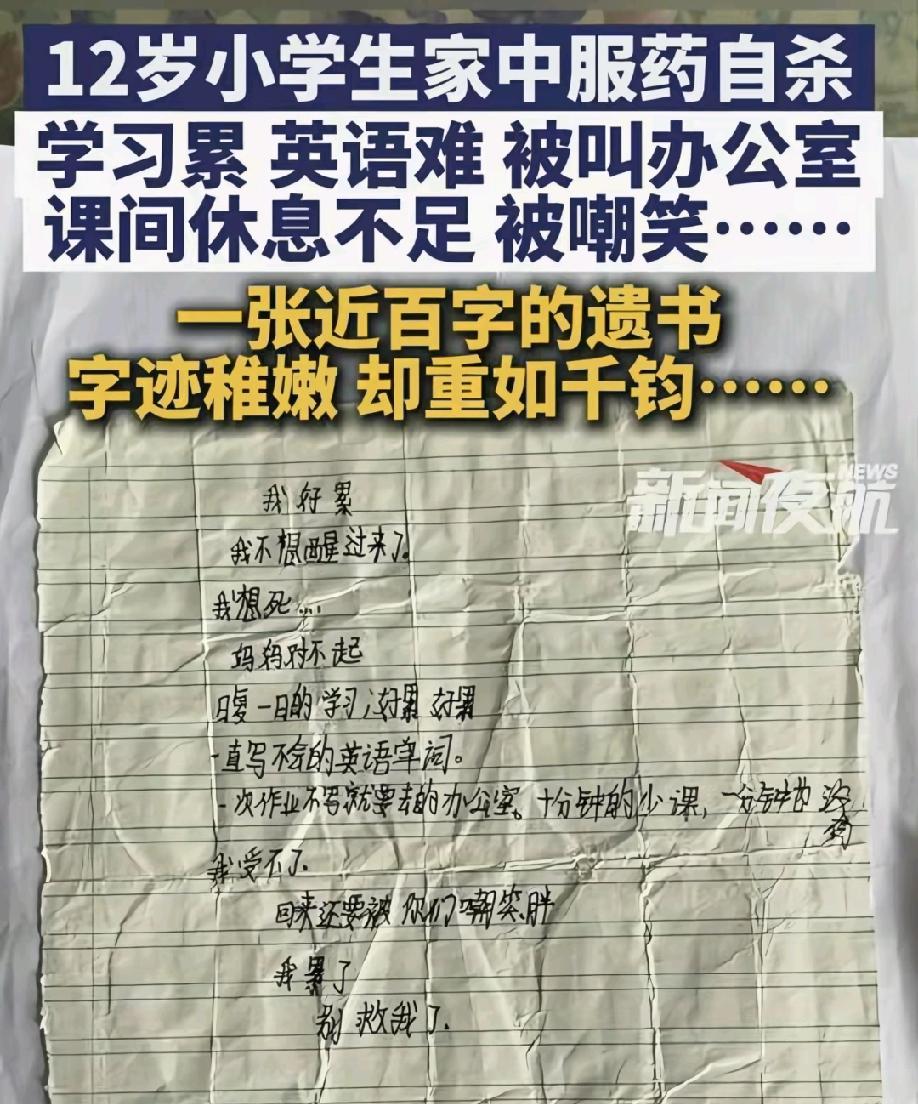 12岁小学生家中服药自杀
学习累 英语难 被叫办公室
课间休息不足 被嘲笑……
一张近百字的遗书
字迹稚嫩 却重如千钧……
新闻夜航 NEWS
我好累
我不想醒过来了.
我想死....
妈妈对不起
日复一日的学习,好累 好累
一直写不会的英语单词。
一次作业不写就要去的办公室。十分钟的少课,一分钟的
我受不了.
回来还要被你们嘲笑胖
我累了
别救我了.